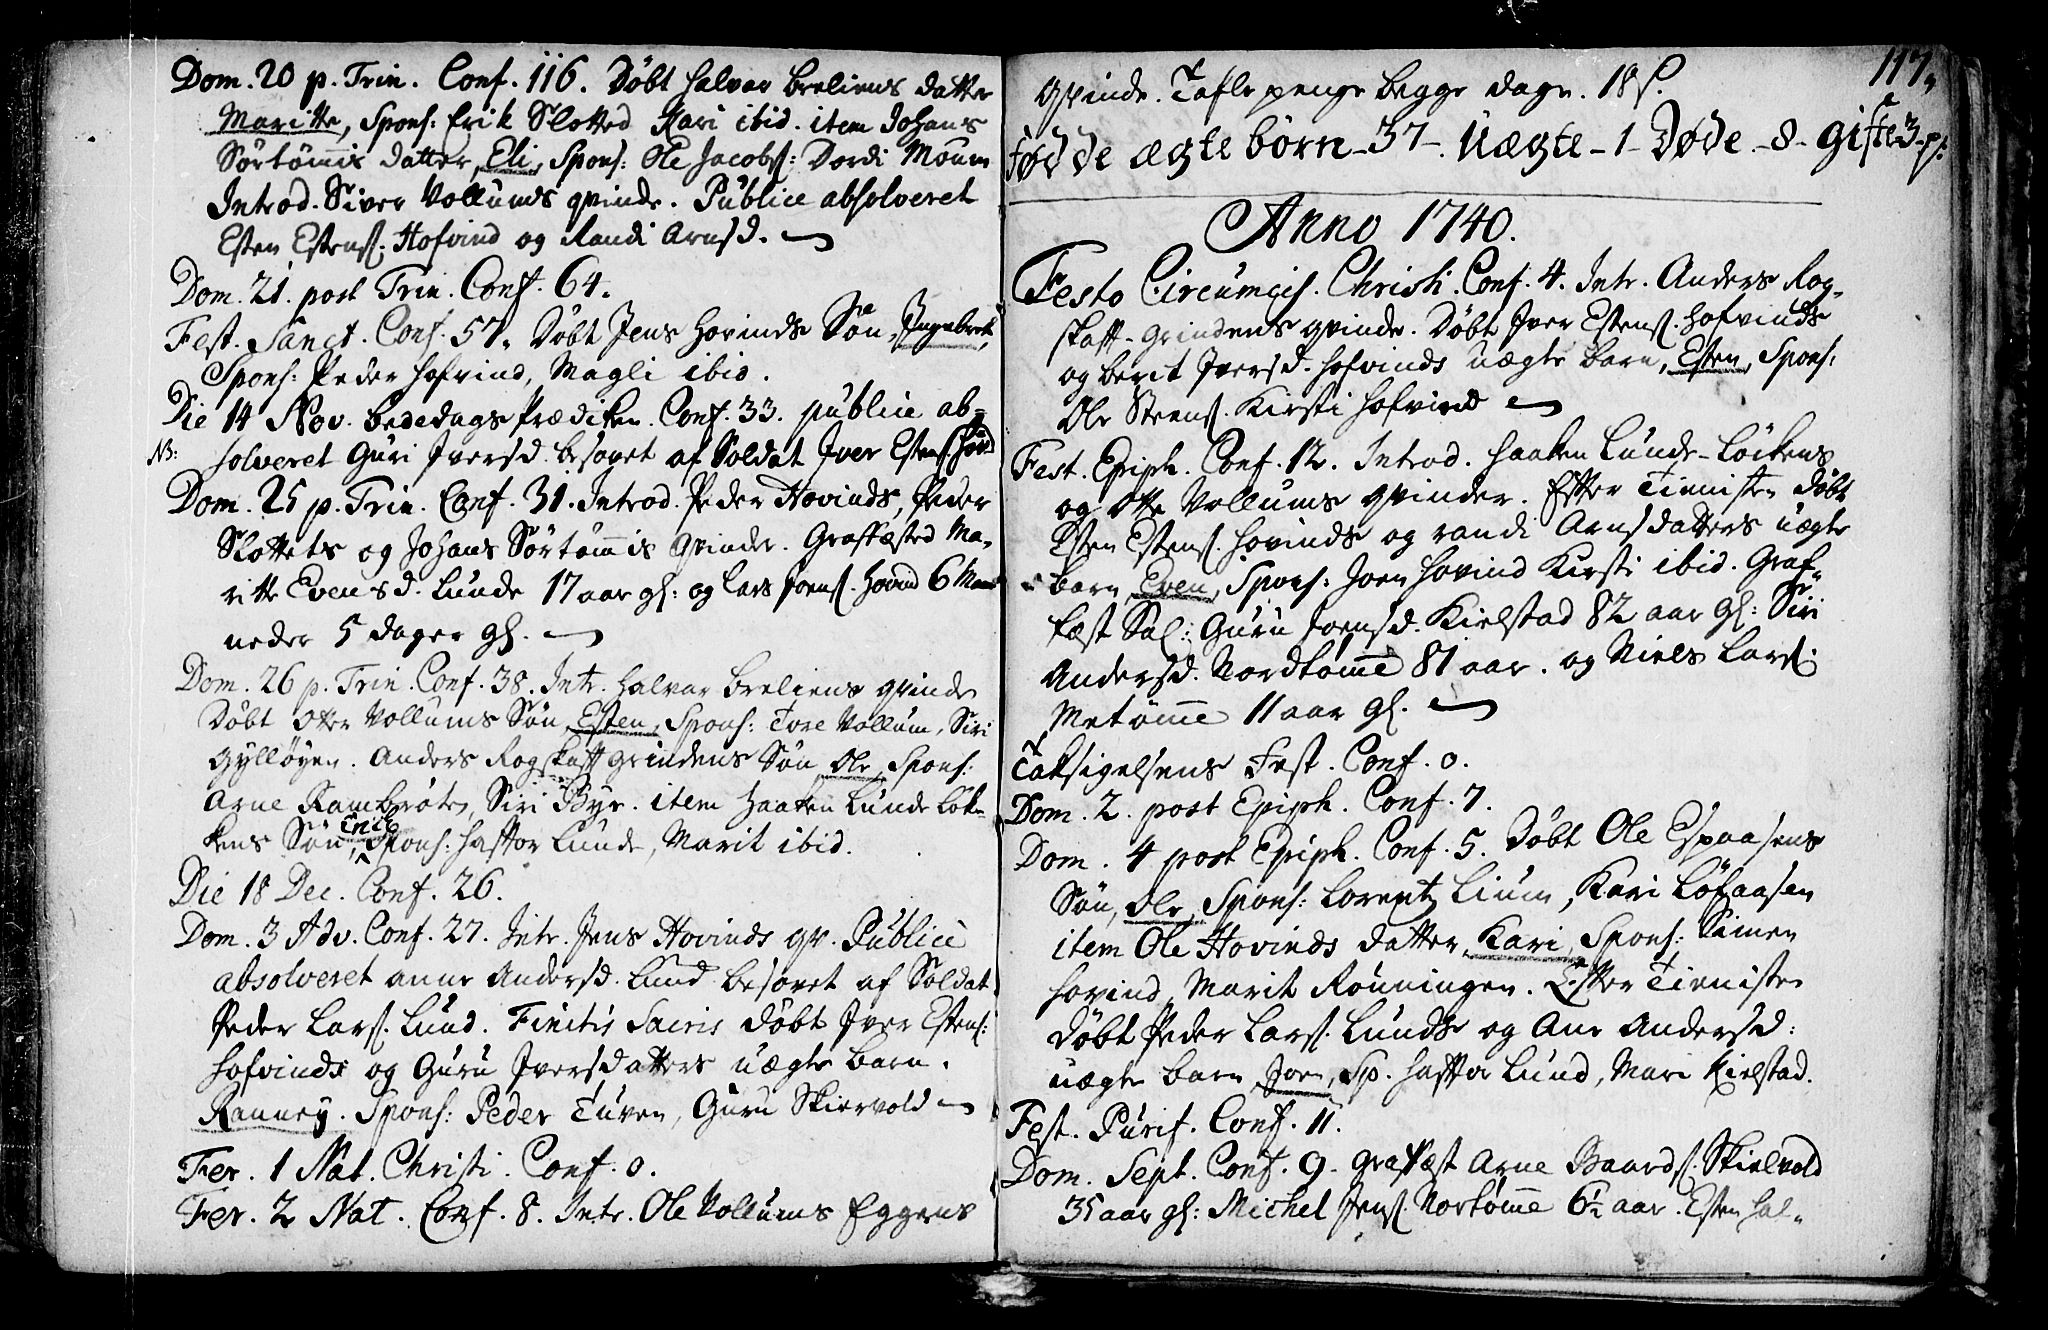 Dom. 20 p. Trin. Conf. 116. Döbt Halvar Breliens datter
Maritte, Spons: Erik Slotted Kari ibid. item Johans
Sörtömmis datter, Eli, Spons: Ole Jacobs: Dordi Moum
Introd. Siver Vollums qvinde. Publice absolveret
Esten Estens. Hofvind og Randi Arnsd.
Dom. 21. post Trin. Conf. 64.
Fest. Sanct. Conf. 57. Döbt Jens Hovinds Sön, Ingebret,
Spons: Peder Hofvind, Magli ibid.
Die 14 Nov. bededags Prædiken. Conf. 33. publice ab=
NB: solveret Guri Iversd. besovet af Soldat Iver Estens. Hovd
Dom. 25 p. Trin. Conf. 31. Introd. Peder Hovinds, Peder
Slottets og Johans Sörtömmis qvinder. Graffæsted Ma-
ritte Evensd. Lunde 17 aar gl: og Lars Joens. Hovind 6 Maa
neder 5 dager gl.
Dom. 26 p. Trin. Conf. 38. Intr. Halvar Breliens qvinde
Döbt Otter Vollums Sön, Esten, Spons: Tore Vollum, Siri
Gyllöyen. Anders Rogskaft grindens Sön Ole, Spons:
Arne Rambröten, Siri Bye. item Haaken Lunde Lök-
kens Sön, Eric, Spons: Haftor Lunde, Marit ibid.
Die 18 Dec. Conf. 26.
Dom. 3 Adv. Conf. 27. Intr. Jens Hovinds qv. Publice
absolveret anne Andersd. Lund besovet af Soldat
Peder Lars. Lund. Finitis Sacris döbt Iver Estens:
Hofvinds og Guru Iversdatters uægte barn.
Ranney. Spons: Peder Tuven, Guru Skiervold
Fer. 1 Nat. Christi. Conf. 0.
Fer. 2 Nat. Conf. 8. Intr. Ole Vollums Eggens
117.
qvinde. Tafle penge begge dage. 18 s.
födde ægte börn - 37 -. Uægte - 1 - Döde. - 8 - gifte 3 p:
Anno 1740.
Festo Circumcis. Christi. Conf. 4. Intr. Anders Rog-
skaft-grindens qvinde. Döbt Iver Estens. Hofvinds
og berit Iversd. Hofvinds uægte barn, Esten, Spons:
Ole Steens. Kirsti Hofvind
Fest. Epiph. Conf. 12. Introd. Haaken Lunde-Löckens
og Otte Vollums qvinder. Efter Tienisten döbt
Esten Estens. Hovinds og randi Arnsdatters uægte
barn, Even, Spons: Joen Hovind Kirsti ibid. Graf-
fæst Sal: Guru Joensd. Kielstad 82 aar gl: Siri
Andersd. Nordtömme 81 aar. og Niels Lars:
Metömme 11 aar gl.
Taksigelsens Fest. Conf. 0.
Dom. 2. post Epiph. Conf. 7.
Dom. 4 post Epiph. Conf. 5. Döbt Ole Espaasens
Sön, Ole, Spons: Lorentz Lium, Kari Löfaasen
item Ole Hovinds datter, Kari, Spons: Simen
Hovind, Marit Rönningen. Efter Tienisten
döbt Peder Lars. Lunds og Ane Andersd:
uægte barn, Joen, Sp. Haftor Lund, Mari Kielstad.
Fest. Purif. Conf. 11.
Dom. Sept. Conf. 9. Graffæst Arne Baards. Skielvold
35 aar gl: Michel Jens. Nortömme 6½ aar. Esten Hal-